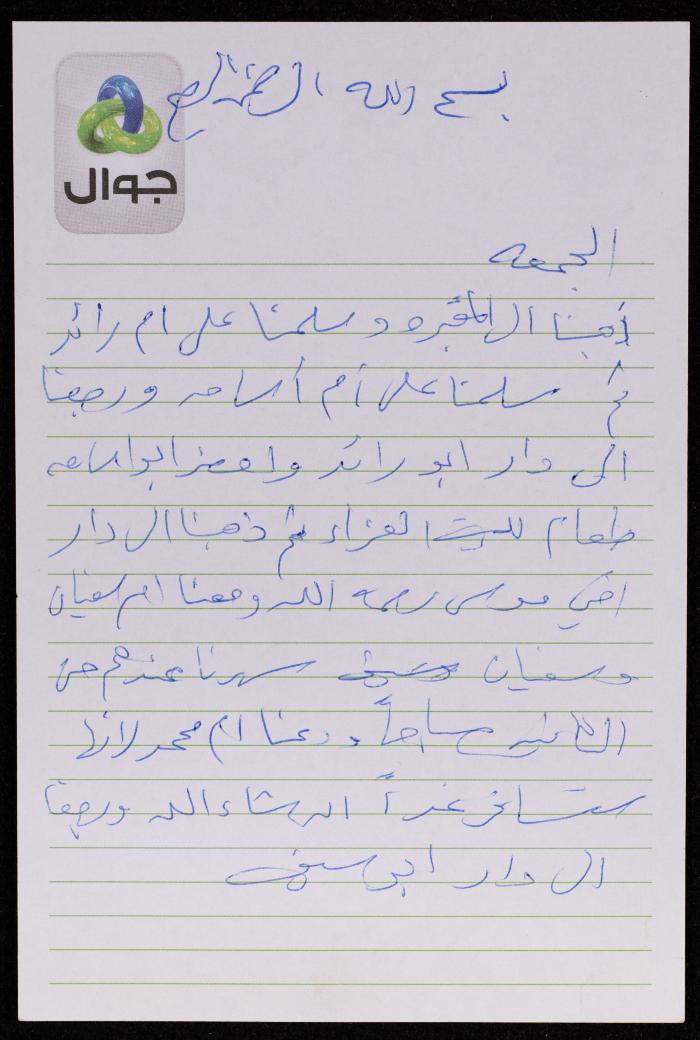 بسم الله الرحمن الرحيم
جوال
الجمعه
ذهبنا الى المقبره وسلمنا على ام رائد
ثم سلمنا على أم أسامه ورجعنا
الى دار ابو رائد واحضر ابو اسامه
طعام لبيت العزاء ثم ذهبنا الى دار
اخي موسى رحمه الله ومعنا ام سفيان
وسفيان سهرنا عندهم حتى
الثانيه صباحاً ودعنا ام محمد لانها
ستسافر غداً ان شاء الله ورجعنا
الى دار ابو سيف